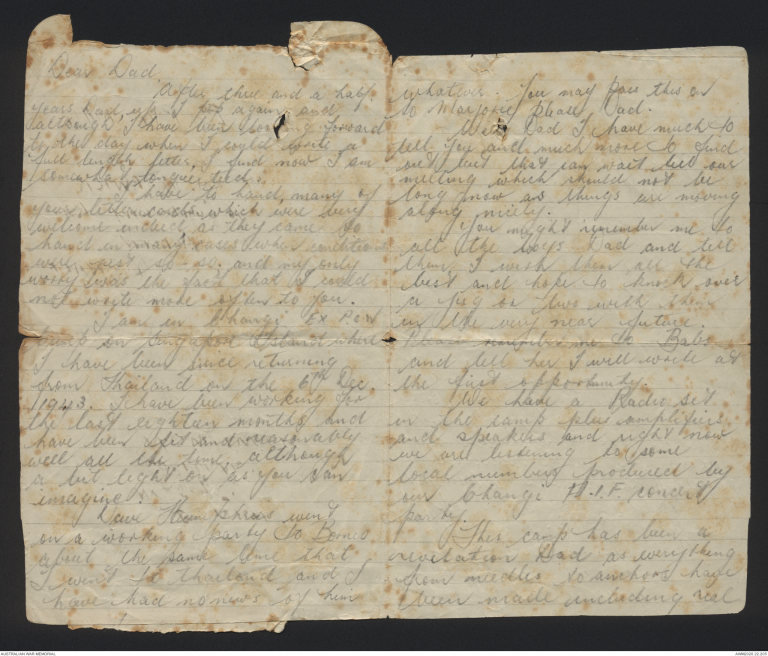 Dear Dad.
After three and a half
years Dad, I am again and
although I have been looking forward
to the day when I could write a
full length letter, I find now I am
somewhat tongue tied.
I have to hand, many of
your letter cards which were very
welcome indeed as they came to
hand in many cases when conditions
were just so-so, and my only
worry was the fact that I could
not write more often to you.
I am in Changi Ex P.O.W
on Singapore Island where
I have been since returning
from Thailand on the 6th Dec
1943. I have been working for
the last eighteen months and
have been fit and reasonably
well all the time, although
a bit light on as you can
imagine.
Dave went
on a working party to Borneo
about the same time that
I went to Thailand and I
have had no news of him
whatever. You may pass this on
to Marjorie please Dad.
Well Dad I have much to
tell you and much more to find
out but that can wait till our
meeting which should not be
long now as things are moving
along nicely.
You might remember me to
all the boys Dad and tell
them I wish them all the
best and hope to knock over
a jug or two with them
in the very near future.
Please remember me to
and tell her I will write at
the first opportunity.
We have a Radio set
in the camp plus amplifiers
and speakers and right now
we are listening to some
local numbers produced by
our Changi A.I.F. concert
party.
This camp has been a
revelation Dad as everything
from needles to anchors have
been made including real
AUSTRALIAN WAR MEMORIAL